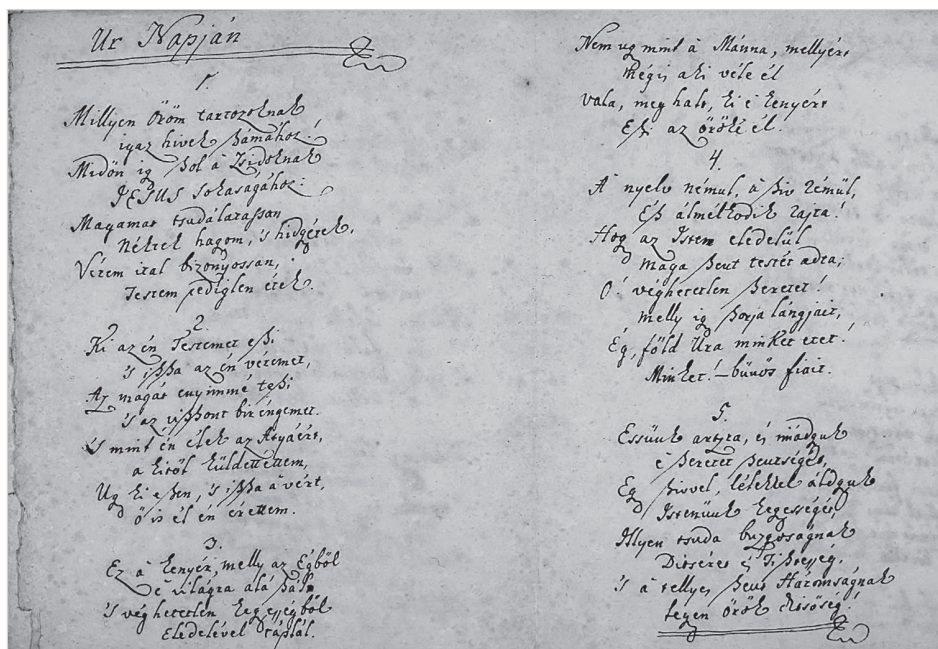 Ur Napján
1.
Millyen öröm tartozoknak
igaz hivek ßámához!
Midön ig ßol à Zsidoknak
JESUS sokaságához:
Magamat tsudálatassan
Néktek hagom, 's hidgyétek,
Vérem ital bizonyossan,
Testem pediglen étek.
2.
Ki az én Testemet eßi
's ißßa az én véremet,
Az magát enyimmé teßi
's az vißßont bir éngemet.
's mint én élek az Atyáért,
a kitöl küldettettem,
Ug ki eßen, 's ißßa à vért,
ö is él én érettem.
3.
Ez à kenyér, melly az Égböl
è világra alá ßált
's véghetetlen kegyességböl
Eledelével táplál.
Nem ug mint à Mánna, mellyért
Mégis aki véle él
vala, meg halt, ki è kenyért
Eßi az örökké él.
4.
A' nyelv némul, à ßiv rémül,
Éß álmélkodik rajta!
Hog az Isten eledelül
maga ßent testét adta;
O! véghetetlen ßeretet!
melly ig ßorja lángjait,
Ég, föld Ura minket etet!
Minket! – bünös fiait.
5.
Essünk arttzra, és imádguk
è ßeretet ßentségét,
Eg ßivvel, lélekkel áldguk
Istenünk kegességét
Illyen tsuda buzgoságnak
Ditséret és Tißtesség,
's à tellyes ßent Háromságnak
legyen örök ditsöség!